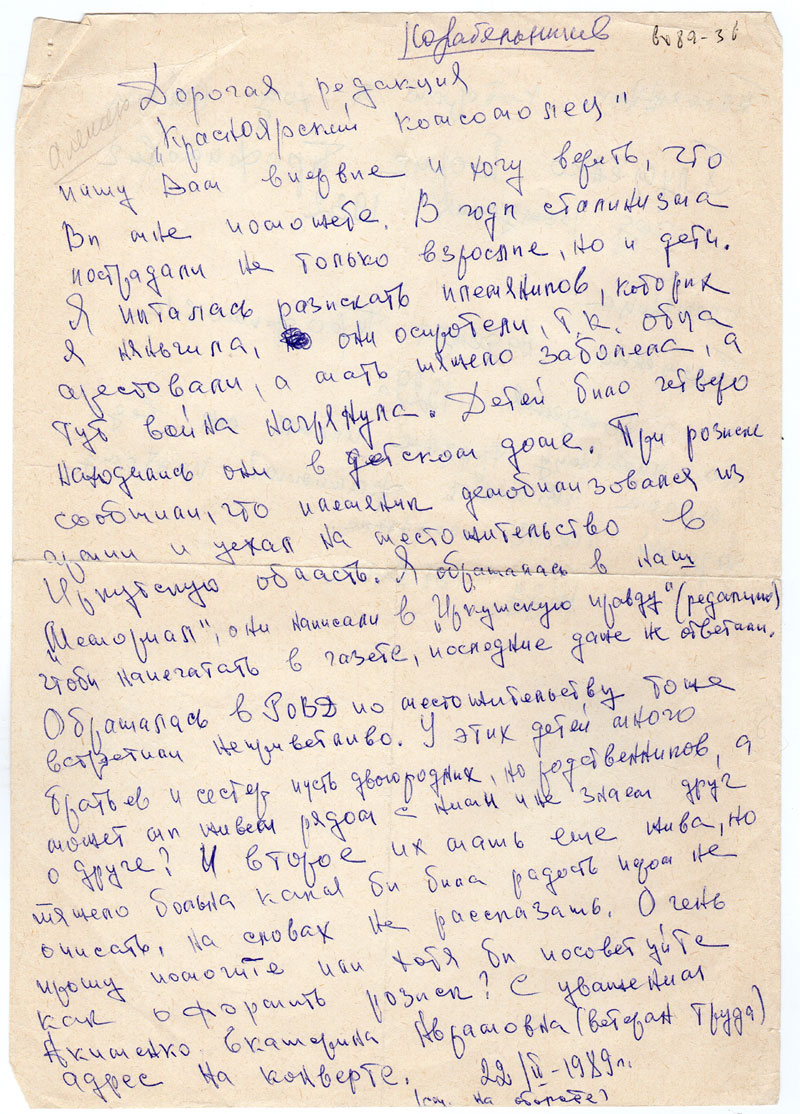 Корабельников
во 89-36
Алексею
Дорогая редакция
"Красноярский комсомолец"
пишу Вам впервие и хочу верить, что
Ви мне поможете. В годи сталинизма
пострадали не только взрослие, но и дети.
Я питалась разискать племяников, которих
я няньчила, они осиротели, т.к. отца
арестовали, а мать тяжело заболела, а
тут война нагрянула. Детей било четверо
находились они в детском доме. При розиске
сообщили, что племяник демобилизовался из
армии и уехал на местожительство в
Иркутскую область. Я обращалась в наш
"Мемориал", они написали в "Иркутскую правду" (редакцию)
чтоби напечатать в газете, последние даже не ответили.
Обращалась в РОВД по местожительству тоже
встретили неприветливо. У этих детей много
братьев и сестер пусть двоюродних, но родственников, а
может ми живем рядом с ними и не знаем друг
о друге? И второе их мать еще жива, но
тяжело больна какая би била радость пером не
описать, на словах не рассказать. Очень
прошу помогите или хотя би посоветуйте
как оформить розиск? С уважением
Акименко Екатерина Аврамовна (ветеран труда)
адрес на конверте. 22/III-1989 г.
(см. на обороте)